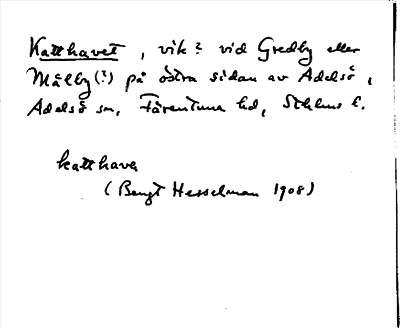 Katthavet, vik? vid Gredby eller
Målby(?) på östra sidan av Adelsö,
Adelsö sn, Färentuna hd, Sthlms l.
katthava
(Bengt Hesselman 1908)